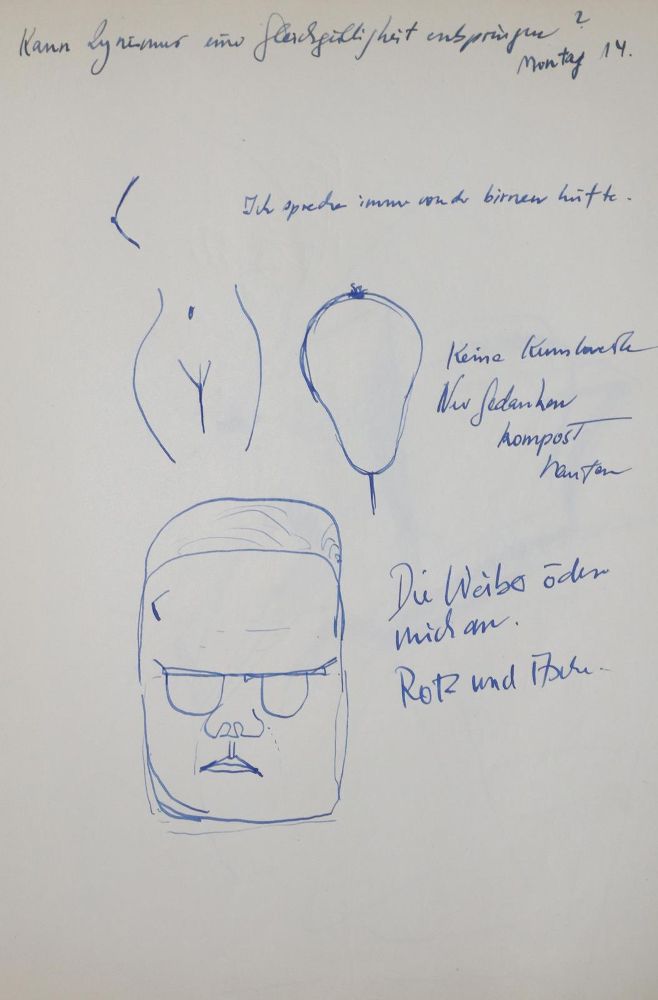 Kann Zynismus eine Gleichgültigkeit entspringen ?
Montag 14.
Ich spreche immer von der birnen hüfte.
Keine Kunstwerke
Nur Gedanken
kompost
haufen
Die Weiber öden
mich an.
Rotz und Asche.